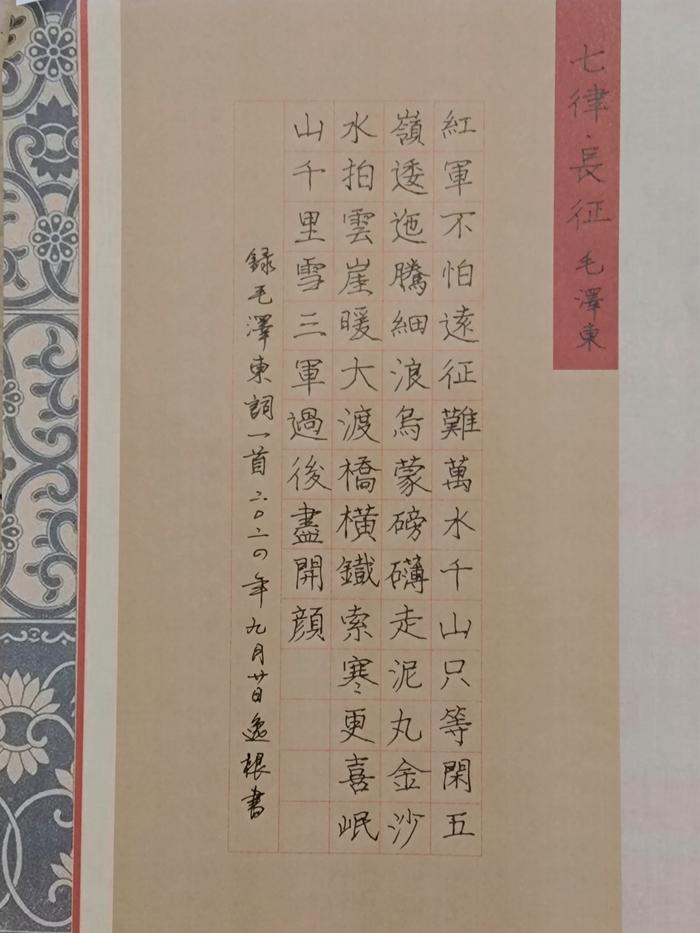 七律·長征 毛澤東
紅軍不怕遠征難萬水千山只等閑五
嶺逶迤騰細浪烏蒙磅礴走泥丸金沙
水拍雲崖暖大渡橋橫鐵索寒更喜岷
山千里雪三軍過後盡開顏
録毛澤東詞一首二〇二〇年九月廿日逸根書